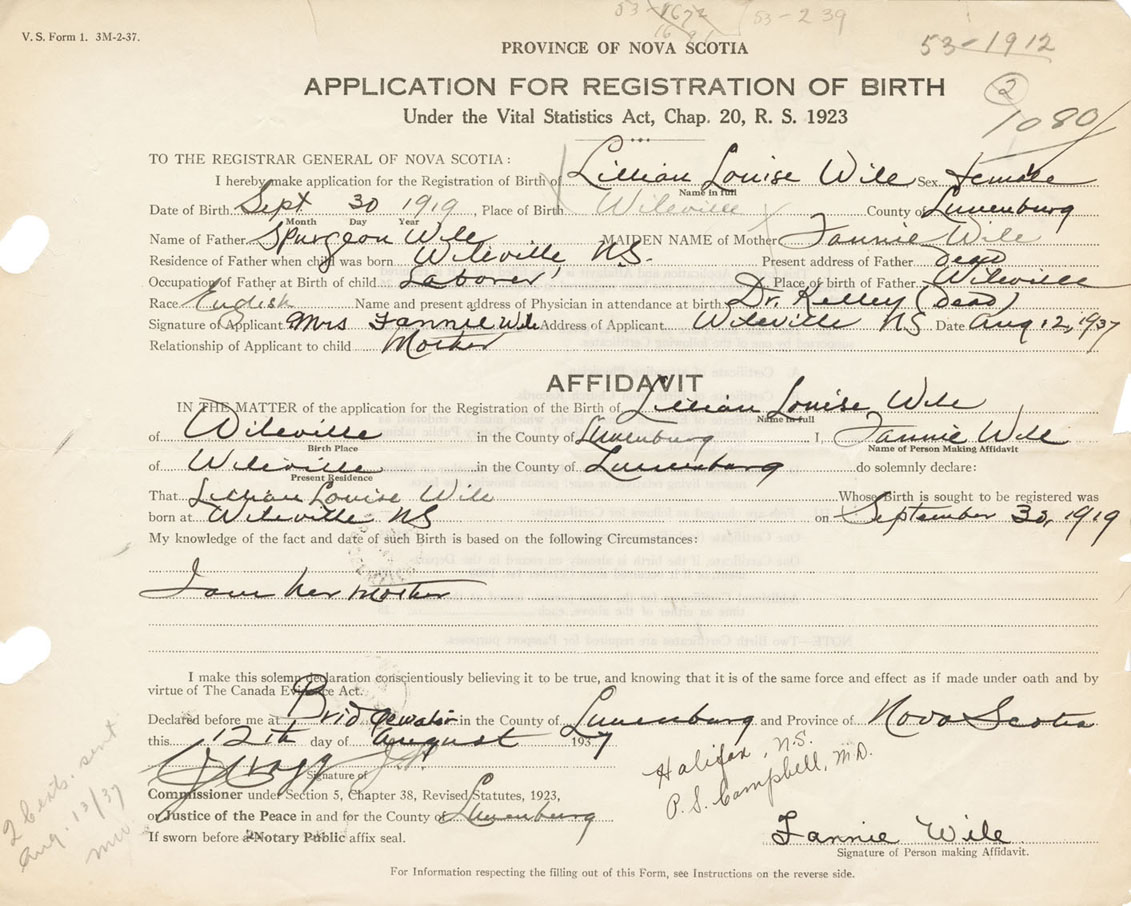 53-1672 53-239
1691
V. S. Form 1. 3M-2-37.
53-1912
PROVINCE OF NOVA SCOTIA
2
APPLICATION FOR REGISTRATION OF BIRTH
1080/
Under the Vital Statistics Act, Chap. 20, R. S. 1923
TO THE REGISTRAR GENERAL OF NOVA SCOTIA:
I hereby make application for the Registration of Birth of Lillian Louise Wile Sex Female
Name in full
Date of Birth Sept 30 1919, Place of Birth Wileville County of Lunenburg
Month Day Year
Name of Father Spurgeon Wile MAIDEN NAME of Mother Fannie Wile
Residence of Father when child was born Wileville N.S. Present address of Father Dead
Occupation of Father at Birth of child Laborer Place of birth of Father Wileville
Race English Name and present address of Physician in attendance at birth Dr. Kelley (Dead)
Signature of Applicant Mrs Fannie Wile Address of Applicant Wileville NS Date Aug 12, 1937
Relationship of Applicant to child Mother
AFFIDAVIT
IN THE MATTER of the application for the Registration of the Birth of Lillian Louise Wile
Name in full
of Wileville in the County of Lunenburg I, Fannie Wile
Birth Place Name of Person Making Affidavit
of Wileville in the County of Lunenburg do solemnly declare:
Present Residence
That Lillian Louise Wile Whose Birth is sought to be registered was
born at Wileville NS on September 30, 1919
My knowledge of the fact and date of such Birth is based on the following Circumstances:
I am her Mother
I make this solemn declaration conscientiously believing it to be true, and knowing that it is of the same force and effect as if made under oath and by
virtue of The Canada Evidence Act.
Declared before me at Bridgewater in the County of Lunenburg and Province of Nova Scotia
this 12th day of August 1937
Signature of
Halifax, N.S.
P. S. Campbell, M.D.
Commissioner under Section 5, Chapter 38, Revised Statutes, 1923,
or Justice of the Peace in and for the County of Lunenburg
If sworn before a Notary Public affix seal.
Fannie Wile
Signature of Person making Affidavit.
2 Certs. sent
Aug. 13/37
For Information respecting the filling out of this Form, see Instructions on the reverse side.